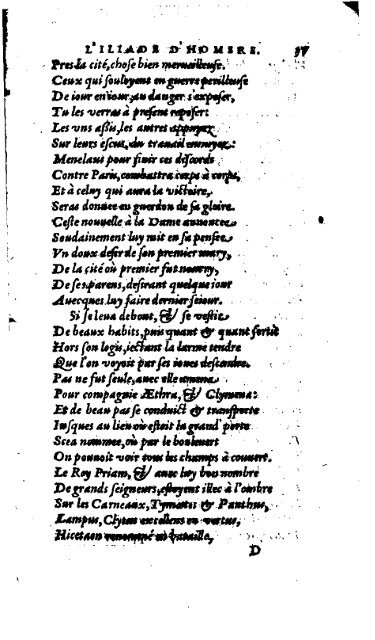 L'ILIADE D'HOMERE.
Pres la cité, chose bien merueilleuse.
Ceux qui souloyent en guerre perilleuse
De iour en iour, au danger s'exposer,
Tu les verras à present reposer:
Les vns assis, les autres appuyez
Sur leurs escus, du trauail ennuyez:
Menelaus pour finir ces discords
Contre Paris, combattra corps à corps,
Et à celuy qui aura la victoire,
Seras donnee en guerdon de sa gloire.
Ceste nouuelle à la Dame annoncee
Soudainement luy mit en sa pensee
Vn doux desir de son premier mary,
De la cité où premier fut nourry,
De ses parens, desirant quelque iour
Auecques luy faire dernier seiour.
Si se leua debout, & se vestit
De beaux habits, puis quant & quant sortit
Hors son logis, iectant la larme tendre
Que l'on voyoit par ses ioues descendre.
Pas ne fut seule, auec elle amena
Pour compagnie Æthra, & Clymena:
Et de beau pas se conduict & transporte
Iusques au lieu où estoit la grand' porte
Scea nommee, où par le bouleuert
On pouuoit voir tous les champs à couuert.
Le Roy Priam, & auec luy bon nombre
De grands seigneurs, estoyent illec à l'ombre
Sur les Carneaux, Tymetes & Panthus,
Lampus, Clytus excellens en vertus,
Hicetaon renommé en bataille,
D